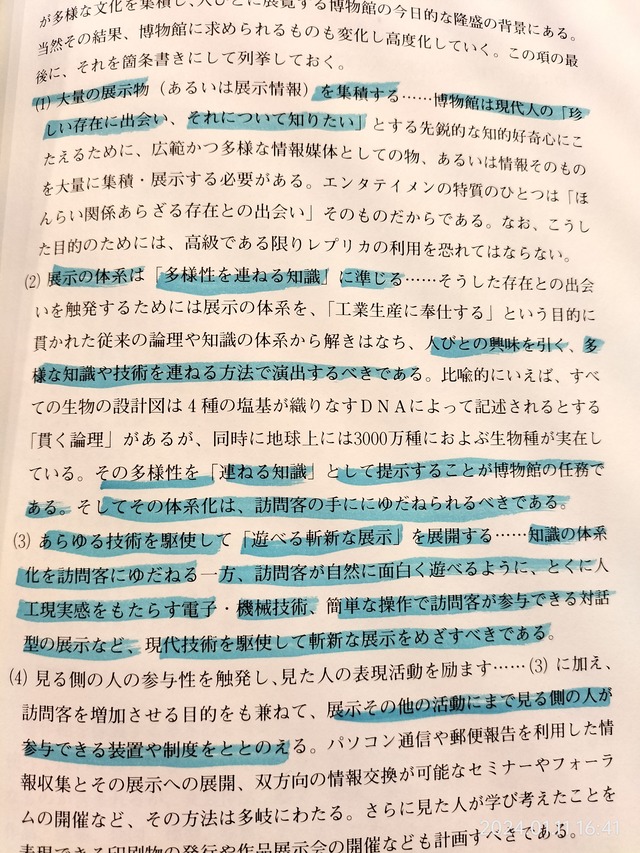 が多様な文化を集積し、人びとに展覧する博物館の今日的な隆盛の背景にある。
当然その結果、博物館に求められるものも変化し高度化していく。この項の最
後に、それを箇条書きにして列挙しておく。
(1) 大量の展示物（あるいは展示情報）を集積する……博物館は現代人の「珍
しい存在に出会い、それについて知りたい」とする先鋭的な知的好奇心にこ
たえるために、広範かつ多様な情報媒体としての物、あるいは情報そのもの
を大量に集積・展示する必要がある。エンタテイメンの特質のひとつは「ほ
んらい関係あらざる存在との出会い」そのものだからである。なお、こうし
た目的のためには、高級である限りレプリカの利用を恐れてはならない。
(2) 展示の体系は「多様性を連ねる知識」に準じる……そうした存在との出会
いを触発するためには展示の体系を、「工業生産に奉仕する」という目的に
貫かれた従来の論理や知識の体系から解きはなち、人びとの興味を引く、多
様な知識や技術を連ねる方法で演出するべきである。比喩的にいえば、すべ
ての生物の設計図は４種の塩基が織りなすＤＮＡによって記述されるとする
「貫く論理」があるが、同時に地球上には3000万種におよぶ生物種が実在し
ている。その多様性を「連ねる知識」として提示することが博物館の任務で
ある。そしてその体系化は、訪問客の手ににゆだねられるべきである。
(3) あらゆる技術を駆使して「遊べる斬新な展示」を展開する……知識の体系
化を訪問客にゆだねる一方、訪問客が自然に面白く遊べるように、とくに人
工現実感をもたらす電子・機械技術、簡単な操作で訪問客が参与できる対話
型の展示など、現代技術を駆使して斬新な展示をめざすべきである。
(4) 見る側の人の参与性を触発し、見た人の表現活動を励ます……(3) に加え、
訪問客を増加させる目的をも兼ねて、展示その他の活動にまで見る側の人が
参与できる装置や制度をととのえる。パソコン通信や郵便報告を利用した情
報収集とその展示への展開、双方向の情報交換が可能なセミナーやフォーラ
ムの開催など、その方法は多岐にわたる。さらに見た人が学び考えたことを
表現できる印刷物の発行や作品展示会の開催なども計画すべきである。
2024.01.11 16:41